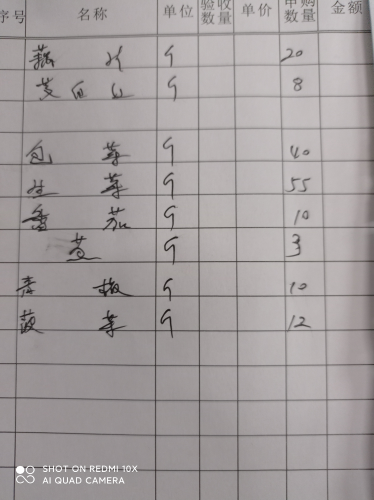 序号 名称 单位 验收数量 单价 申购数量 金额
藕片 斤 20
斤 8
包菜 斤 40
生菜 斤 55
番茄 斤 10
斤 3
青椒 斤 10
菠菜 斤 12
SHOT ON REDMI 10X
AI QUAD CAMERA